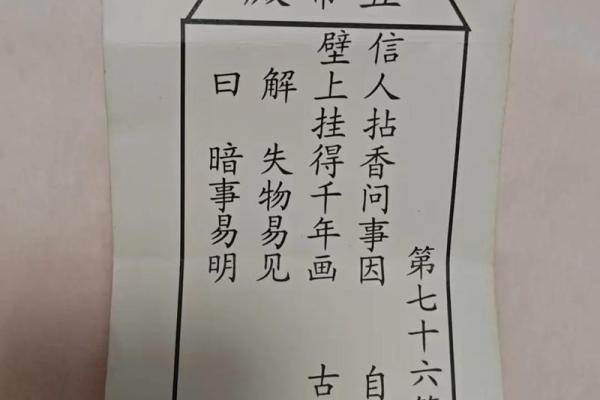 第七十六
信人拈香问事因 自
壁上挂得千年画 古
解 失物易见
曰 暗事易明